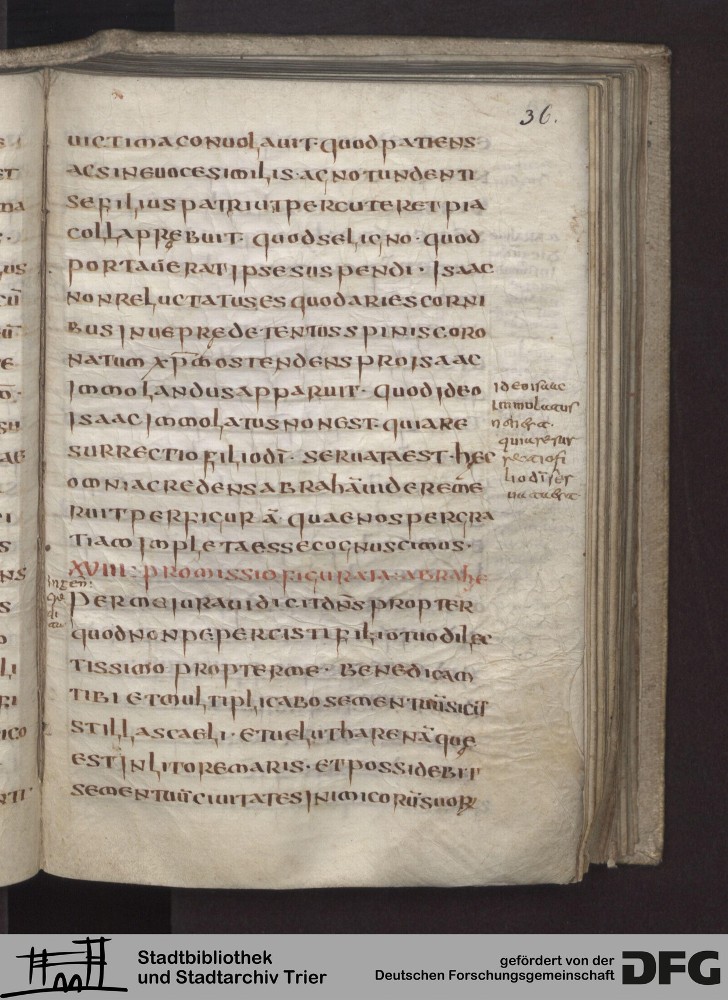 36.
uictimaconuolauit· quodpatiens
acsineuocesimilis· acnotundenti
sefiliuspatriutpercuteretpia
collaprębuit· quodseligno· quod
portauerat ipsesuspendi· isaac
nonreluctatusęs quodariescorni
bus inueprędetentus spiniscoro
natum xp̄m ostendens proisaac
immolandusapparuit· quodideo
isaac immolatus nonest· quiare
surrectio filiodī· seruataest· hęc
omniacredensabrahāuideremē
ruitperfigurā quaenospergra
tiam impletaessecognuscimus·
XVIII· promissiofigurata· abrahę
permeiuraui dicitdn̄s propter
quodnonpepercistifiliotuodilec
tissimo propterme· benedicam
tibi etmultiplicabosementuūsicut
stillascaeli· etuelutharenāque
est inlitoremaris· etpossidebit
sementuūciuitates inimicorūsuor
ideoisaac
immolatus
non est·
quiaresur
rectiofi
liodī ser
uata est
ingen̄:
Stadtbibliothek
und Stadtarchiv Trier
gefördert von der
Deutschen Forschungsgemeinschaft
DFG